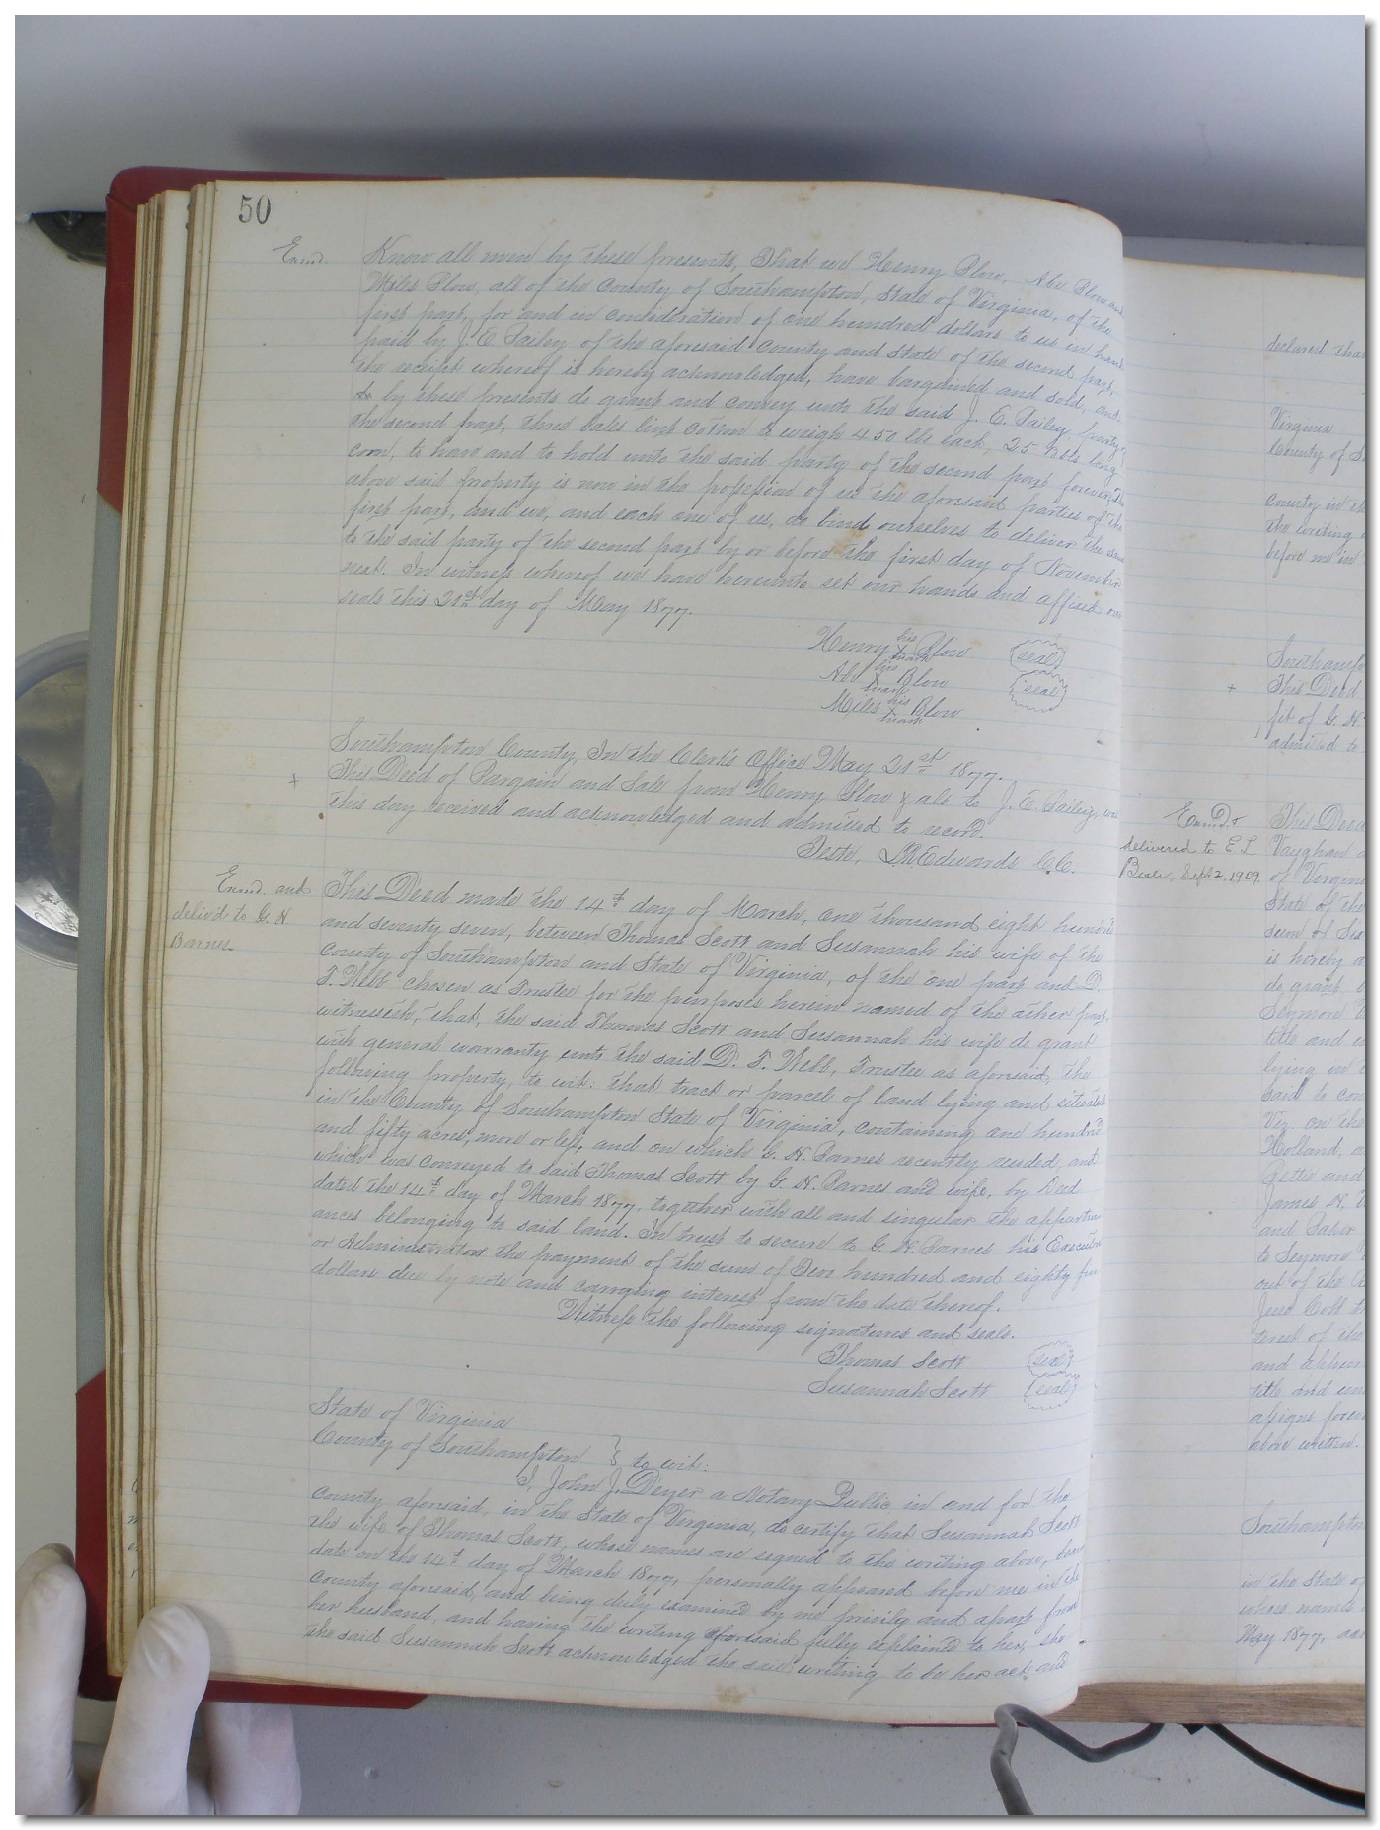 50
Exmd.
Know all men by these presents, That we Henry Blow, Abe Blow and
Miles Blow, all of the County of Southampton, State of Virginia, of the
first part, for and in consideration of one hundred dollars to us in hand
paid by J. E. Bailey of the aforesaid County and State of the second part,
the receipt whereof is hereby acknowledged, have bargained and sold, and
do by these presents do grant and convey unto the said J. E. Bailey, party of
the second part, three bales lint cotton to weigh 450 lbs each, 25 bbls
corn, to have and to hold unto the said party of the second part forever, The
above said property is now in the possession of us the aforesaid parties of the
first part, and we, and each one of us, do bind ourselves to deliver the same
to the said party of the second part by or before the first day of November
next. In witness whereof we have hereunto set our hands and affixed our
seals this 21st day of May 1877.
Henry his x mark Blow (seal)
Abe his x mark Blow (seal)
Miles his x mark Blow
Southampton County, In the Clerk's Office May 21st 1877.
+
This Deed of Bargain and Sale from Henry Blow & als to J. E. Bailey, was
this day received and acknowledged and admitted to record.
Teste, L.R. Edwards C.C.
Exmd. and
delivd to G. N.
Barnes
This Deed made the 14th day of March, one thousand eight hundred
and seventy seven, between Thomas Scott and Susannah his wife of the
County of Southampton and State of Virginia, of the one part and D.
F. Webb chosen as Trustee for the purposes herein named of the other part,
witnesseth, that, the said Thomas Scott and Susannah his wife do grant
with general warranty unto the said D. F. Webb, Trustee as aforesaid, the
following property, to wit: that tract or parcel of land lying and situated
in the County of Southampton State of Virginia, containing one hundred
and fifty acres, more or less, and on which G. N. Barnes recently resided, and
which was conveyed to said Thomas Scott by G. N. Barnes and wife, by Deed
dated the 14th day of March 1877, together with all and singular the appurten
ances belonging to said land. In trust to secure to G. N. Barnes his Executor
or Administrator the payment of the sum of hundred and eighty
dollars due by note and carrying interest from the date thereof.
Witness the following signatures and seals.
Thomas Scott (seal)
Susannah Scott (seal)
State of Virginia
County of Southampton } to wit:
I, John J. Deyer a Notary Public in and for the
County aforesaid, in the State of Virginia, do certify that Susannah Scott
the wife of Thomas Scott, whose names are signed to the writing above, bearing
date on the 14th day of March 1877, personally appeared before me in the
County aforesaid, and being duly examined by me privily and apart from
her husband, and having the writing aforesaid fully explained to her, she
the said Susannah Scott acknowledged the said writing to be her act and
declared that
Virginia
County of S
County in th
the writing
before me in
Southamp
+
This Deed
fit of G. N.
admitted to
Exmd. &
delivered to E L
Beale, Sept 2, 1909
This Deed
Vaughan
of Virginia
State of the
is hereby
do grant,
Seymore
title and
lying in
said to con
Viz. on the
Holland,
Gettie and
James H.
and Jabez
to Seymore
out of the
Jesse Cobb
terest of the
and appur
title and
assigns forev
above written.
Southampton
in the State of
whose names
May 1877,